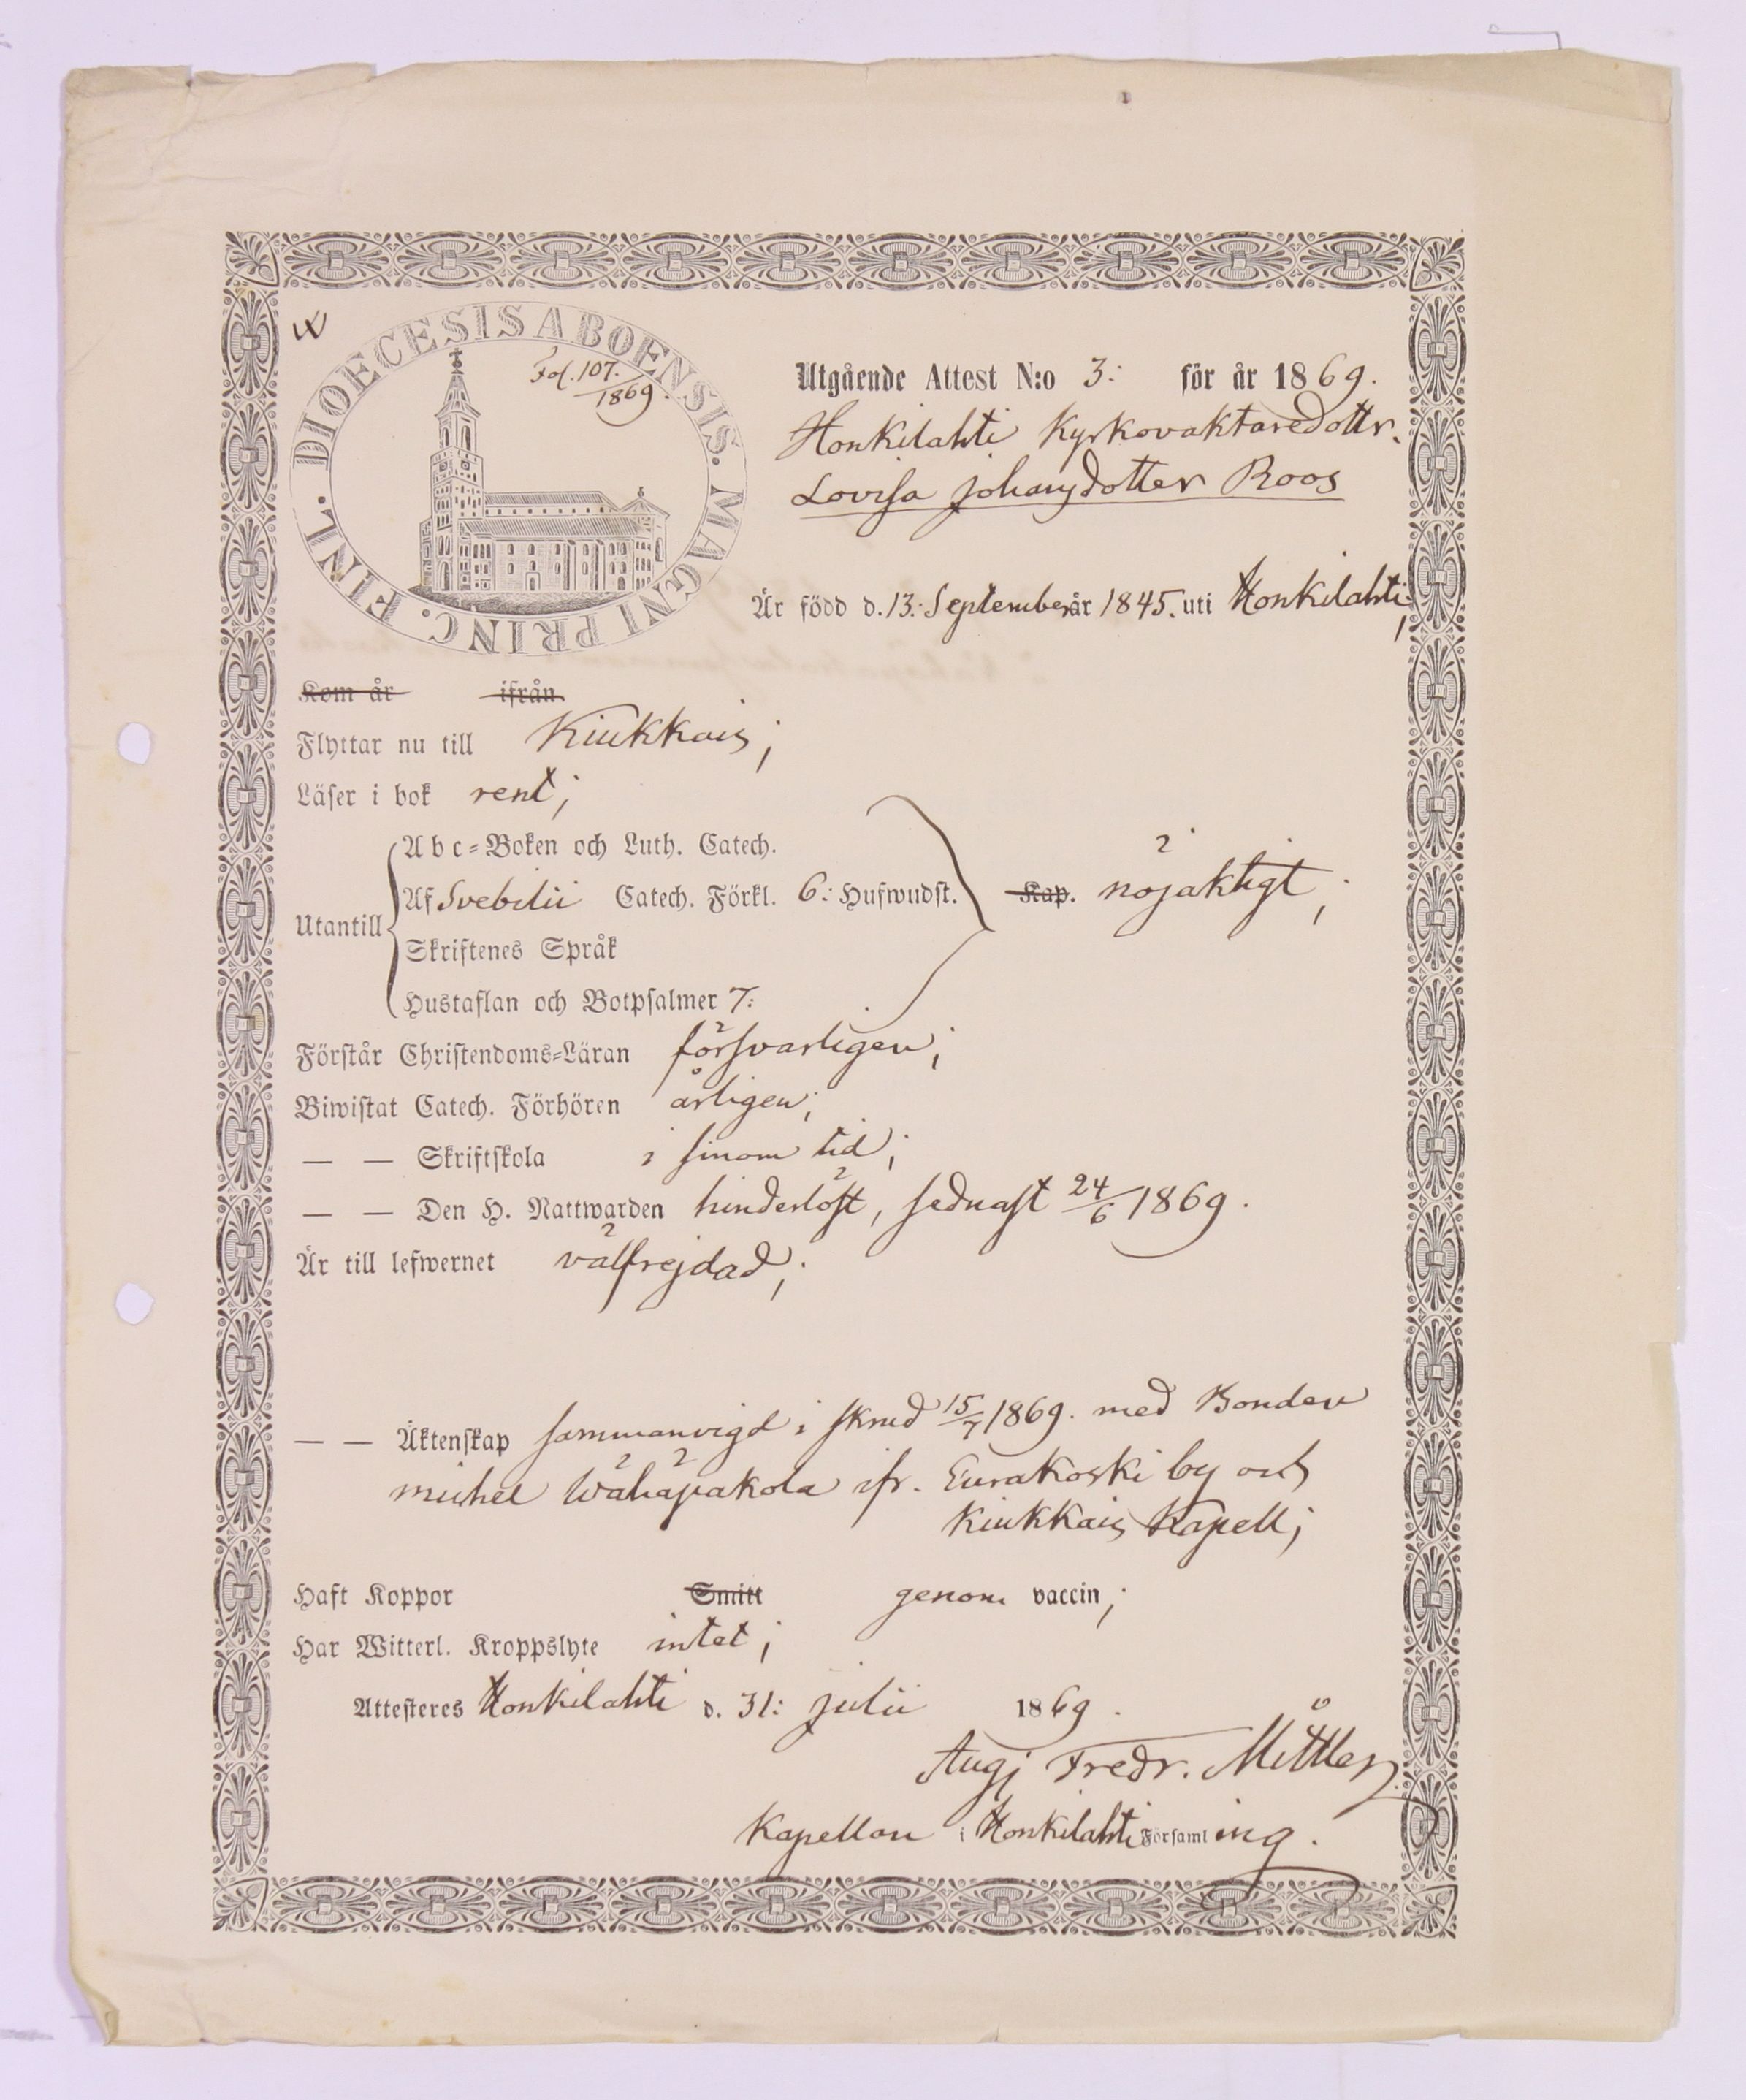 DIOECESIS ABOENSIS. MAGNI PRINC. FINL.
Fol. 107.
1869.
Utgående Attest N:o 3: för år 1869.
Honkilahti Kyrkovaktaredottr.
Lovisa Johansdotter Roos
Är född d. 13: September år 1845. uti Honkilahti;
Kom år ifrån
Flyttar nu till Kiukkais;
Läser i bok rent;
Utantill
Abc-Boken och Luth. Catech.
Af Svebilii Catech. Förkl. 6: Hufwudst. Kap. nöjaktigt;
Skriftenes Språk
Hustaflan och Botpsalmer 7:
Förstår Christendoms-Läran försvarligen;
Biwistat Catech. Förhören årligen;
— — Skriftskola i sinom tid;
— — Den H. Nattwarden hinderlöst, sednast 24/6 1869.
Är till lefwernet välfrejdad;
— — Äktenskap sammanvigd i skrud 15/7 1869. med Bonden
Michel Wähäpakola ifr. Eurakoski by och
Kiukkais Kapell;
Haft Koppor Smitt genom vaccin;
Har Witterl. Kroppslyte intet;
Attesteres Honkilahti d. 31: Julii 1869.
Fredr.
Kapellan i Honkilahti Församling.